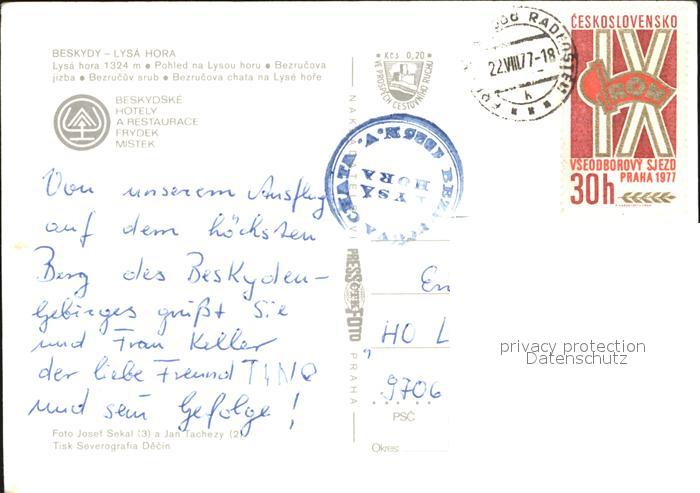 BESKYDY – LYSÁ HORA
Lysá hora 1324 m ● Pohled na Lysou horu ● Bezručova
jizba ● Bezručův srub ● Bezručova chata na Lysé hoře
BESKYDSKÉ
HOTELY
A RESTAURACE
FRÝDEK
MÍSTEK
Von unserem Ausflug
auf dem höchsten
Berg des Beskyden-
Gebirges grüßt Sie
und Frau Keller
der liebe Freund TINO
und sein Gefolge!
Foto Josef Sekal (3) a Jan Tachezy (2)
Tisk Severografia Děčín
PRESSFOTO
PRAHA
Kčs 0,20
VE PROSPĚCH CESTOVNÍHO RUCHU
CHATA
LYSÁ
HORA
22.VIII.77-18
ČESKOSLOVENSKO
IX
ROH
VŠEODBOROVÝ SJEZD
PRAHA 1977
30h
HO L
9706
PSČ
Okres:
privacy protection
Datenschutz